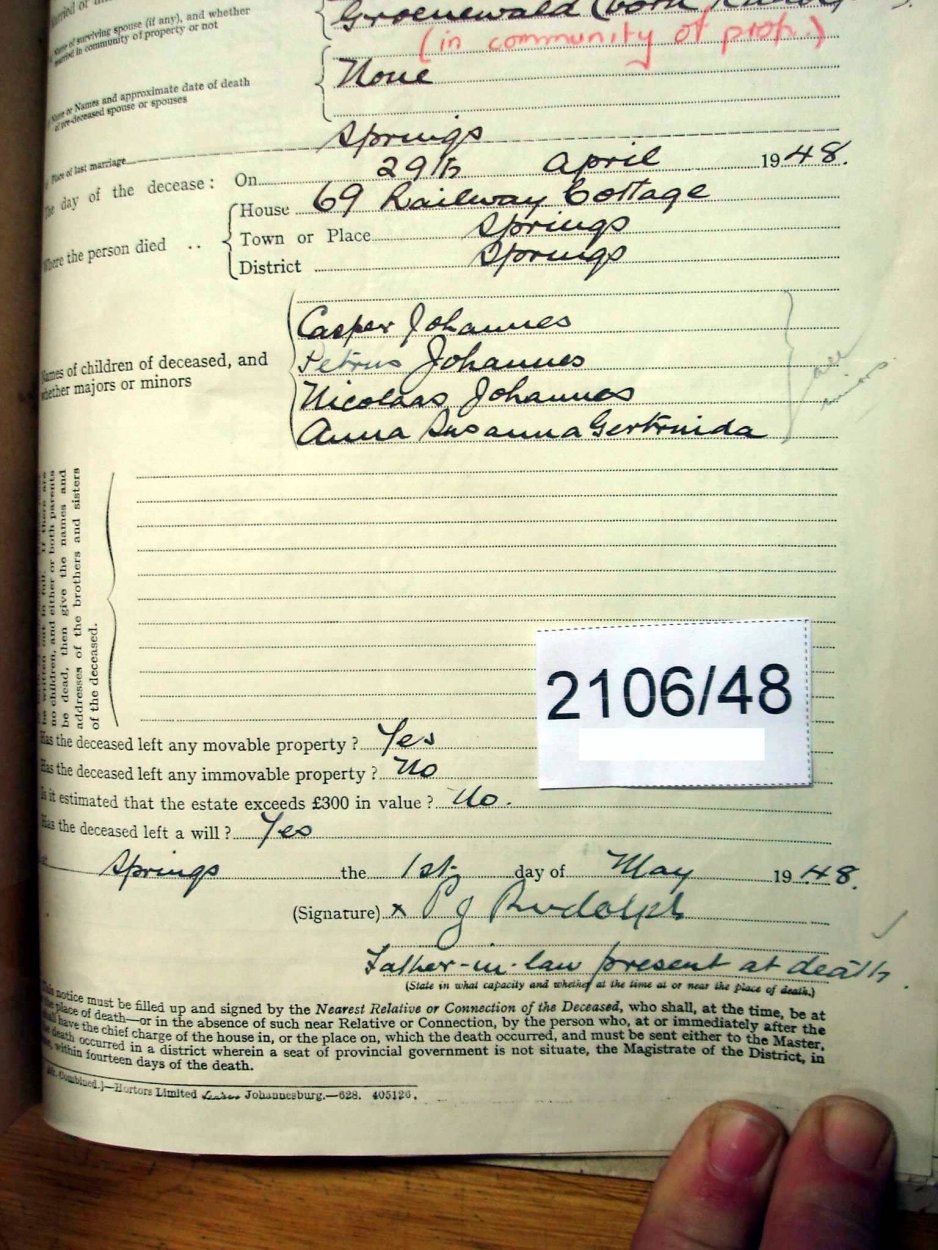 Groenewald (born
(in community of prop.)
Name of surviving spouse (if any), and whether
married in community of property or not
None
Name or Names and approximate date of death
of pre-deceased spouse or spouses
Place of last marriage Springs
The day of the decease: On 29th April 19 48.
House 69 Railway Cottage
Where the person died .. Town or Place Springs
District Springs
Casper Johannes
Names of children of deceased, and Petrus Johannes
whether majors or minors Nicolaas Johannes
Anna Susanna Gertruida
all
no children, and either or both parents
be dead, then give the names and
addresses of the brothers and sisters
of the deceased.
2106/48
Has the deceased left any movable property ? Yes
Has the deceased left any immovable property ? No
Is it estimated that the estate exceeds £300 in value ? No.
Has the deceased left a will ? Yes
at Springs the 1st day of May 19 48.
(Signature) x P J Rudolph
Father-in-law present at death.
(State in what capacity and whether at the time at or near the place of death.)
This notice must be filled up and signed by the Nearest Relative or Connection of the Deceased, who shall, at the time, be at
the place of death—or in the absence of such near Relative or Connection, by the person who, at or immediately after the
shall have the chief charge of the house in, or the place on, which the death occurred, and must be sent either to the Master,
the death occurred in a district wherein a seat of provincial government is not situate, the Magistrate of the District, in
within fourteen days of the death.
Combined.]—Hortors Limited Johannesburg.—628. 405126.